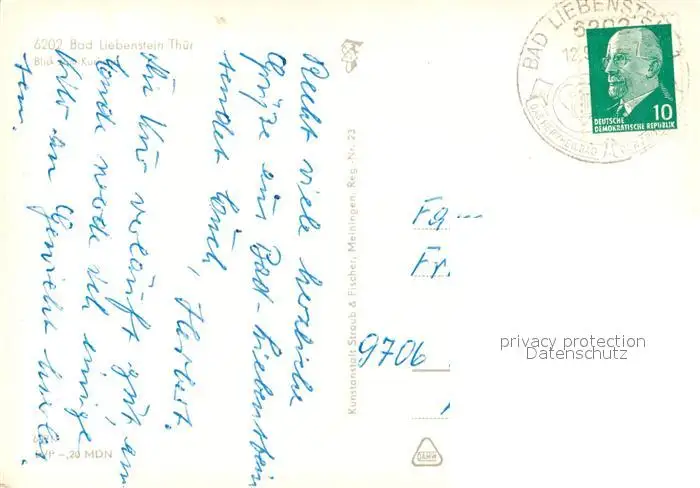 6202 Bad Liebenstein Thür
Blick
Recht viele herzliche
Grüße aus Bad-Liebenstein
sendet Euch, Herbert.
Die Kur verläuft gut am
Ende werde ich einige
Kilo an Gewicht
sein.
VP -,20 MDN
Kunstanstalt Straub & Fischer, Meiningen, Reg.-Nr. 23
BAD LIEBENSTEIN
6202
12.
DEUTSCHE
DEMOKRATISCHE REPUBLIK
10
Fa
Fr.
9706
privacy protection
Datenschutz